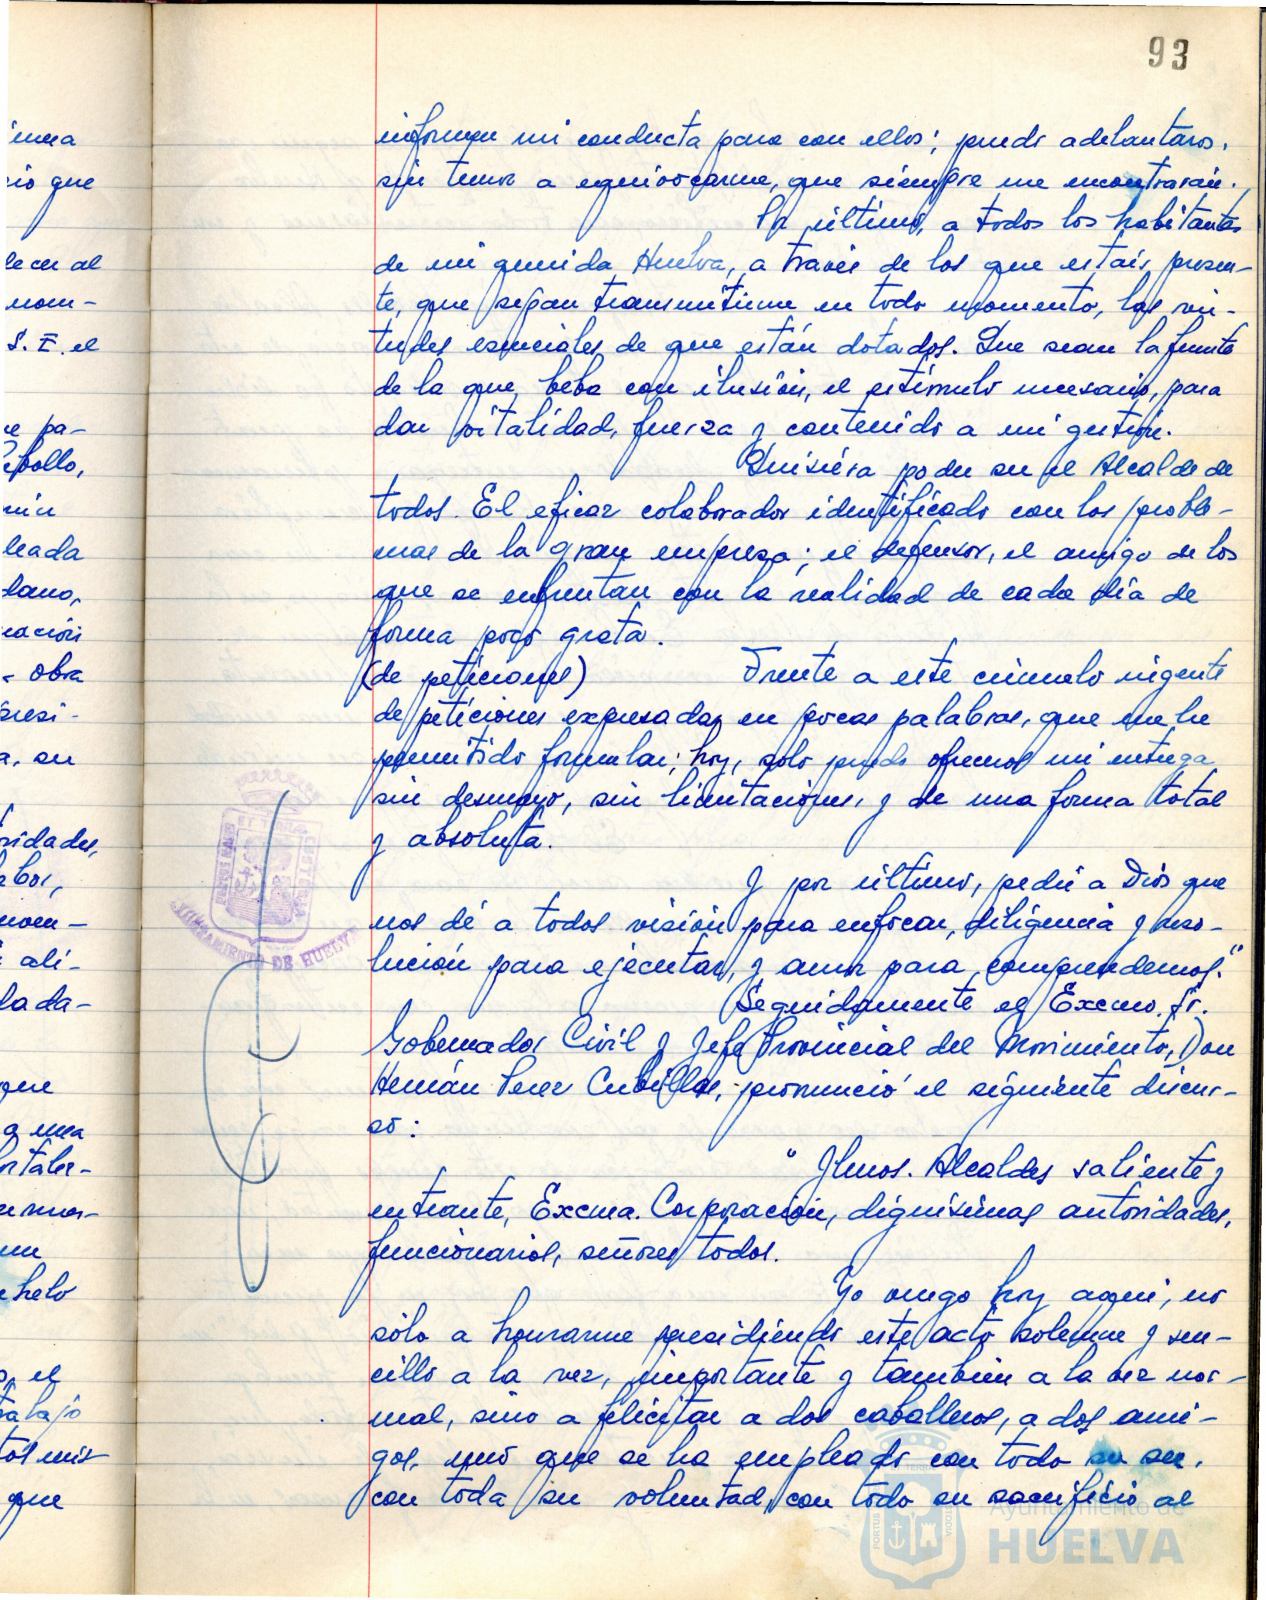 93
informen mi conducta para con ellos; puedo adelantaros,
sin temor a equivocarme, que siempre me encontrarán.
Por último, a todos los habitantes
de mi querida Huelva, a través de los que estáis presen-
te, que sepan transmitirme en todo momento, las vir-
tudes esenciales de que están dotados. Que sean la fuente
de la que beba con ilusión, el estímulo necesario, para
dar vitalidad, fuerza y contenido a mi gestión.
Quisiera poder ser el Alcalde de
todos. El eficaz colaborador identificado con los proble-
mas de la gran empresa; el defensor, el amigo de los
que se enfrentan con la realidad de cada día de
forma poco grata.
(de peticiones) Frente a este cúmulo ingente
de peticiones expresadas en pocas palabras, que me he
permitido formular; hoy, solo puedo ofreceros mi entrega
sin desmayo, sin limitaciones, y de una forma total
y absoluta.
Y por último, pedir a Dios que
nos dé a todos visión para enfocar, diligencia y reso-
lución para ejecutar, y amor para comprendernos."
Seguidamente el Excmo. Sr.
Gobernador Civil y Jefe Provincial del Movimiento, Don
Hernán Perez Cubillas, pronunció el siguiente discur-
so:
" Ilmos. Alcaldes saliente y
entrante, Excma. Corporación, dignísimas autoridades,
funcionarios, señores todos.
Yo vengo hoy aquí, no
sólo a honrarme presidiendo este acto solemne y sen-
cillo a la vez, importante y también a la vez nor-
mal, sino a felicitar a dos caballeros, a dos ami-
gos, uno que se ha empleado con todo su ser,
con toda su voluntad, con todo su sacrificio al
AYUNTAMIENTO DE HUELVA
Ayuntamiento de
HUELVA